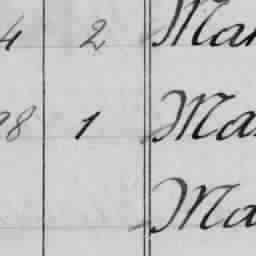 4 2 Mar
98 1 Mar
Ma